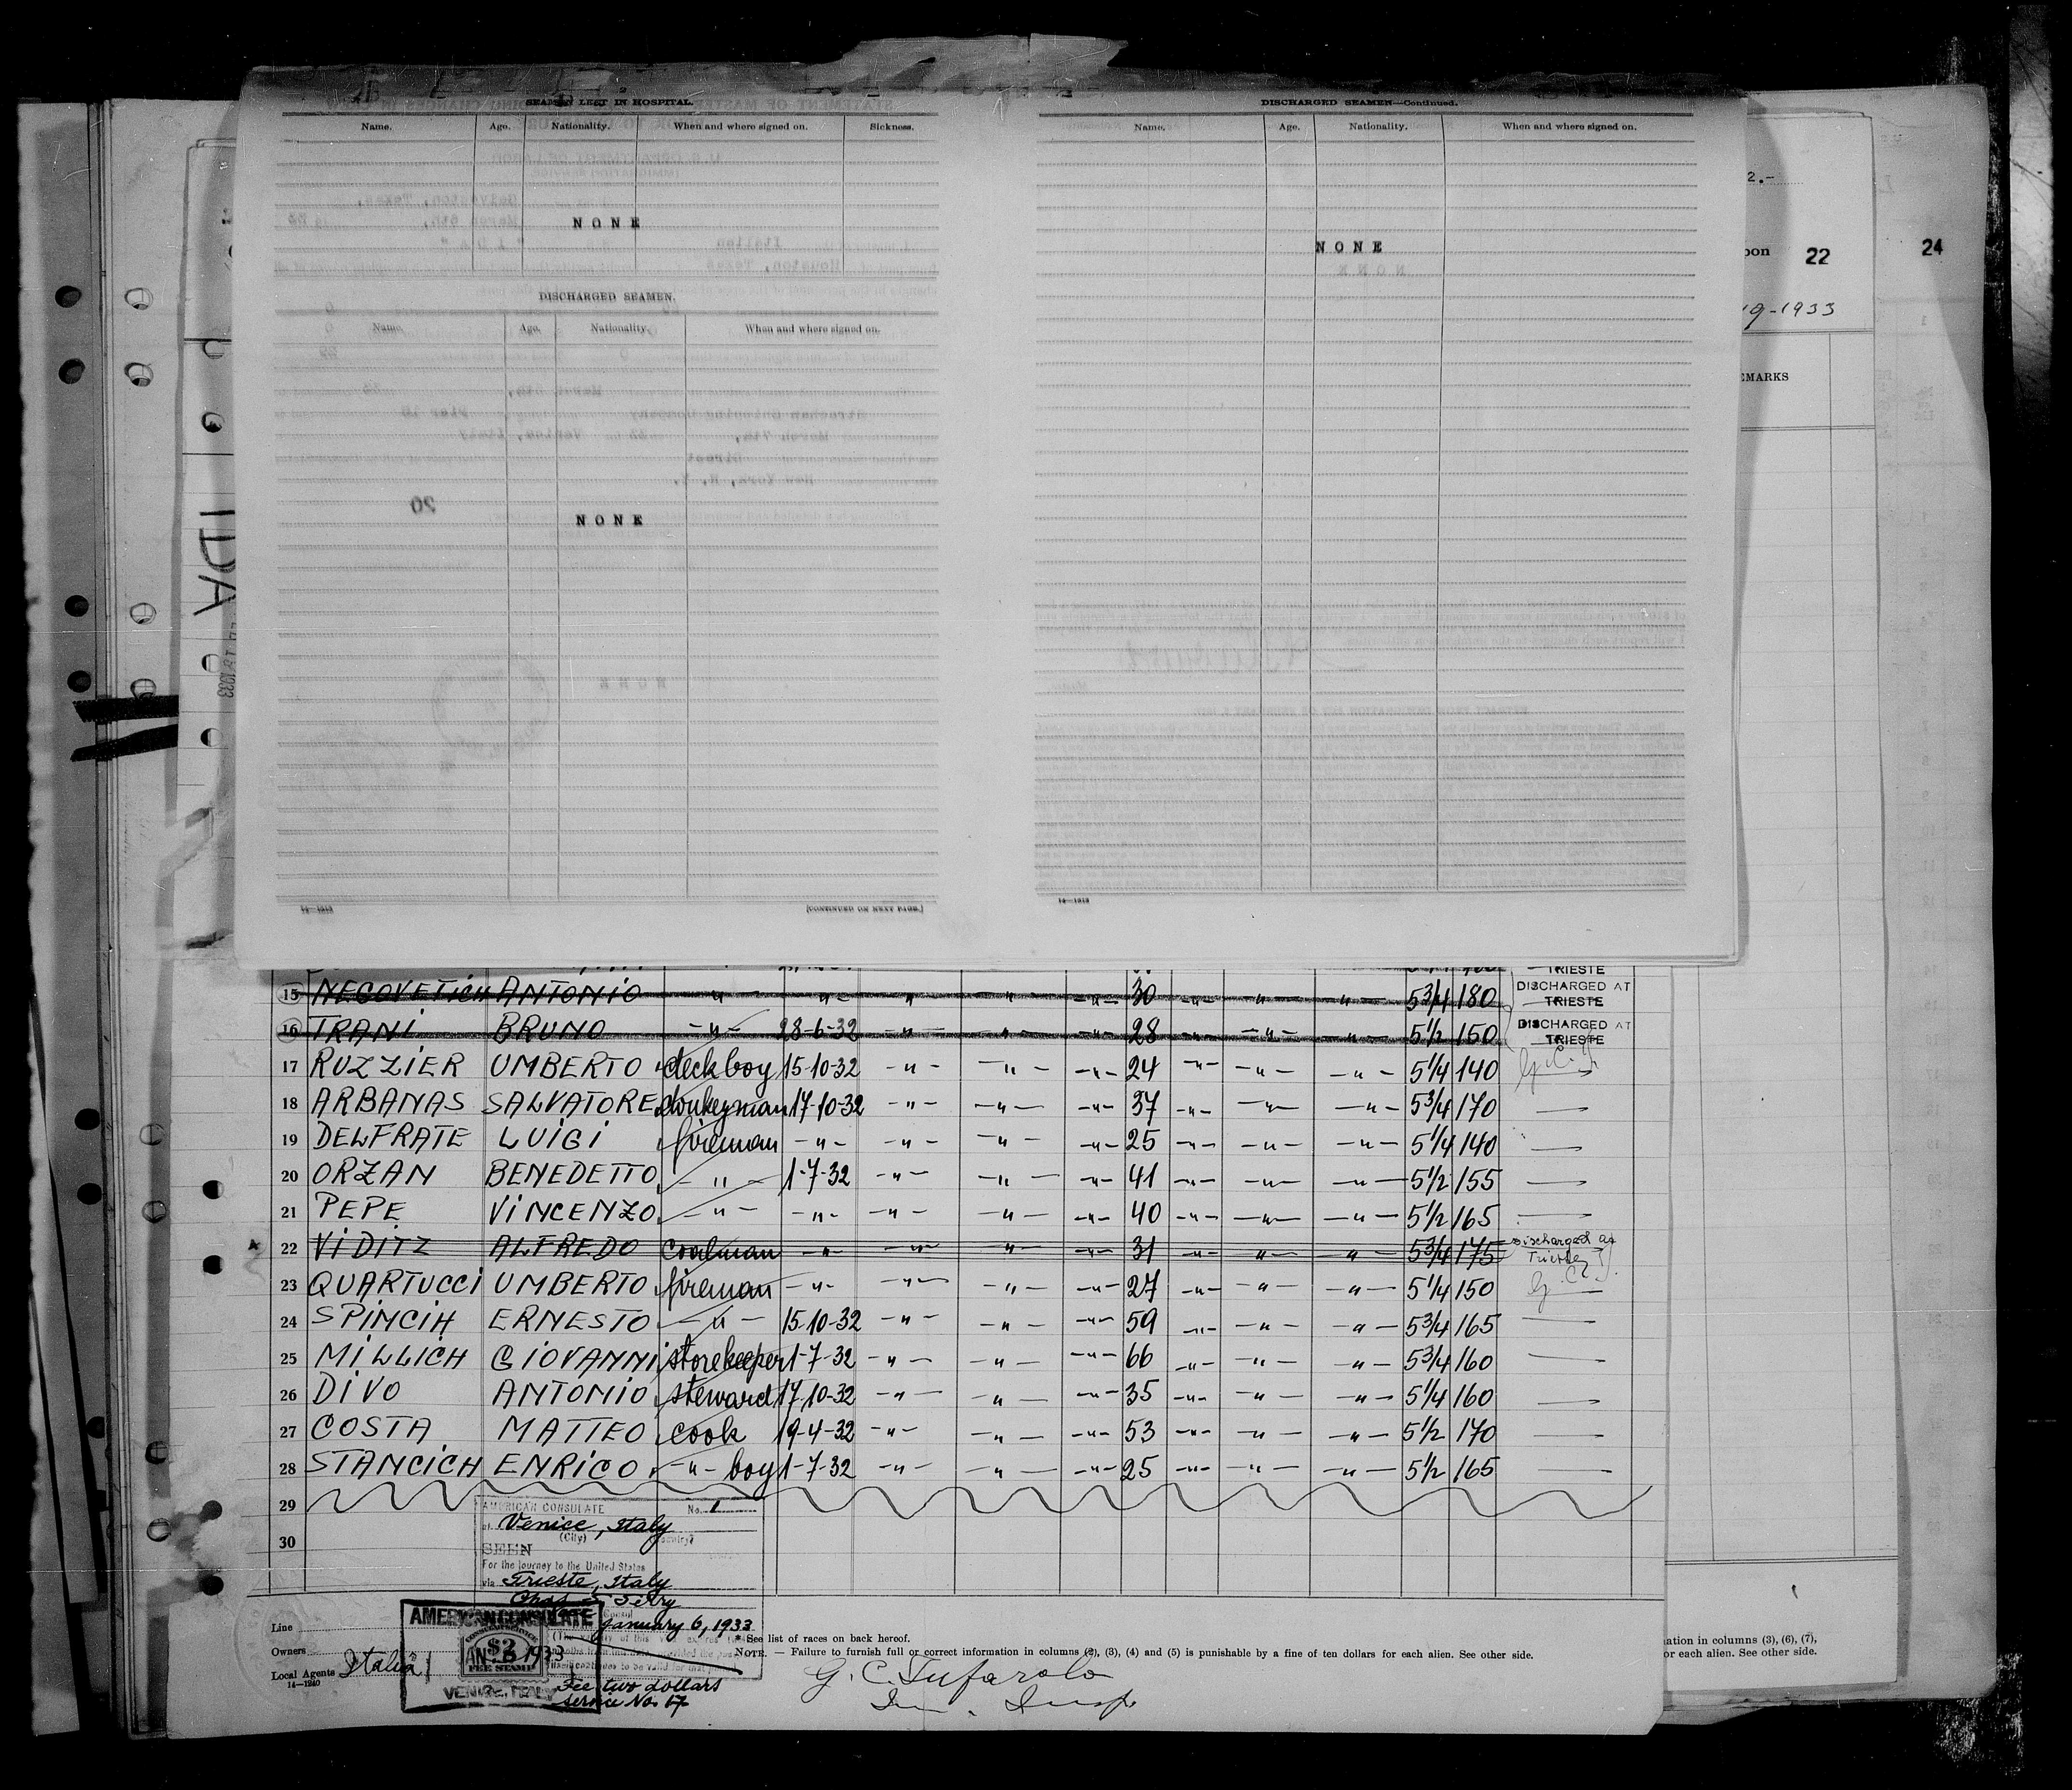 SEAMEN LEFT IN HOSPITAL.
Name. Age. Nationality. When and where signed on. Sickness.
NONE
DISCHARGED SEAMEN.
Name. Age. Nationality. When and where signed on.
NONE
14—1213 [CONTINUED ON NEXT PAGE.]
DISCHARGED SEAMEN—Continued.
Name. Age. Nationality. When and where signed on.
NONE
14—1213
2.-
22
24
19-1933
EMARKS
IDA
TRIESTE
15 NEGOVETICH ANTONIO -"- -"- -"- -"- -"- 30 -"- -"- -"- 5 3/4 180 DISCHARGED AT TRIESTE
16 TRANI BRUNO -"- 28-6-32 -"- -"- -"- 28 -"- -"- -"- 5 1/2 150 DISCHARGED AT TRIESTE
17 RUZZIER UMBERTO deck boy 15-10-32 -"- -"- -"- 24 -"- -"- -"- 5 1/4 140
18 ARBANAS SALVATORE donkeyman 17-10-32 -"- -"- -"- 37 -"- -"- -"- 5 3/4 170 —
19 DELFRATE LUIGI fireman -"- -"- -"- -"- 25 -"- -"- -"- 5 1/4 140 —
20 ORZAN BENEDETTO -"- 1-7-32 -"- -"- -"- 41 -"- -"- -"- 5 1/2 155 —
21 PEPE VINCENZO -"- -"- -"- -"- -"- 40 -"- -"- -"- 5 1/2 165 —
22 VIDITZ ALFREDO coalman -"- -"- -"- -"- 31 -"- -"- -"- 5 3/4 175 Discharged at Trieste
23 QUARTUCCI UMBERTO fireman -"- -"- -"- -"- 27 -"- -"- -"- 5 1/4 150 —
24 SPINCIH ERNESTO -"- 15-10-32 -"- -"- -"- 59 -"- -"- -"- 5 3/4 165 —
25 MILLICH GIOVANNI storekeeper 1-7-32 -"- -"- -"- 66 -"- -"- -"- 5 3/4 160 —
26 DIVO ANTONIO steward 17-10-32 -"- -"- -"- 35 -"- -"- -"- 5 1/4 160 —
27 COSTA MATTEO cook 19-4-32 -"- -"- -"- 53 -"- -"- -"- 5 1/2 170 —
28 STANCICH ENRICO -"- boy 1-7-32 -"- -"- -"- 25 -"- -"- -"- 5 1/2 165 —
29
30
AMERICAN CONSULATE No. 1
at Venice, Italy
(City) (Country)
SEEN
For the journey to the United States
via Trieste, Italy
January 6, 1933
Fee two dollars
Service No. 17
AMERICAN CONSULATE
$2
FEE STAMP
JAN. 6 1933
VENICE, ITALY
Line
Owners
Local Agents Italia
14—1240
* See list of races on back hereof.
NOTE. — Failure to furnish full or correct information in columns (2), (3), (4) and (5) is punishable by a fine of ten dollars for each alien. See other side.
G. C. Tufarolo
Im. Insp
ation in columns (3), (6), (7),
or each alien. See other side.